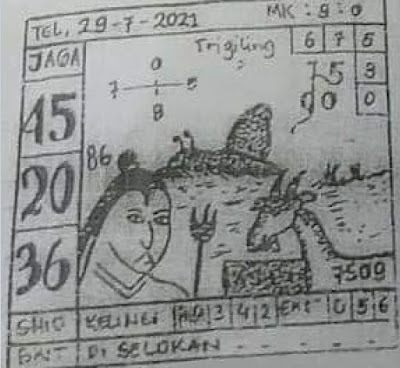 TEL, 29-7-2021 MK : 9 : 0
JAGA Trigiling 6 7 5
0
7 5
8
7 5 9
9 0 0
45
86
20
36
7509
SHIO KELINCI 3 4 2 0 5 6
DI SELOKAN - - - - -